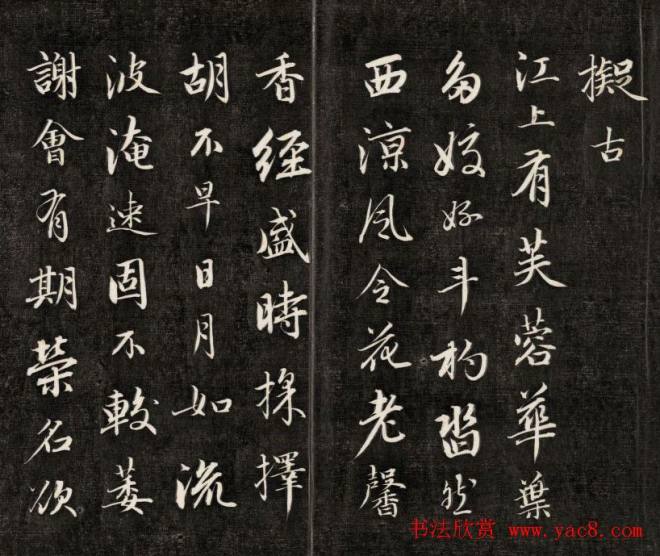 擬古
江上有芙蓉華葉
多姣好斗杓曶然
西涼風令花老馨
香經盛時採擇
胡不早日月如流
波淹速固不較萎
謝會有期榮名欲
书法欣赏 www.yac8.com